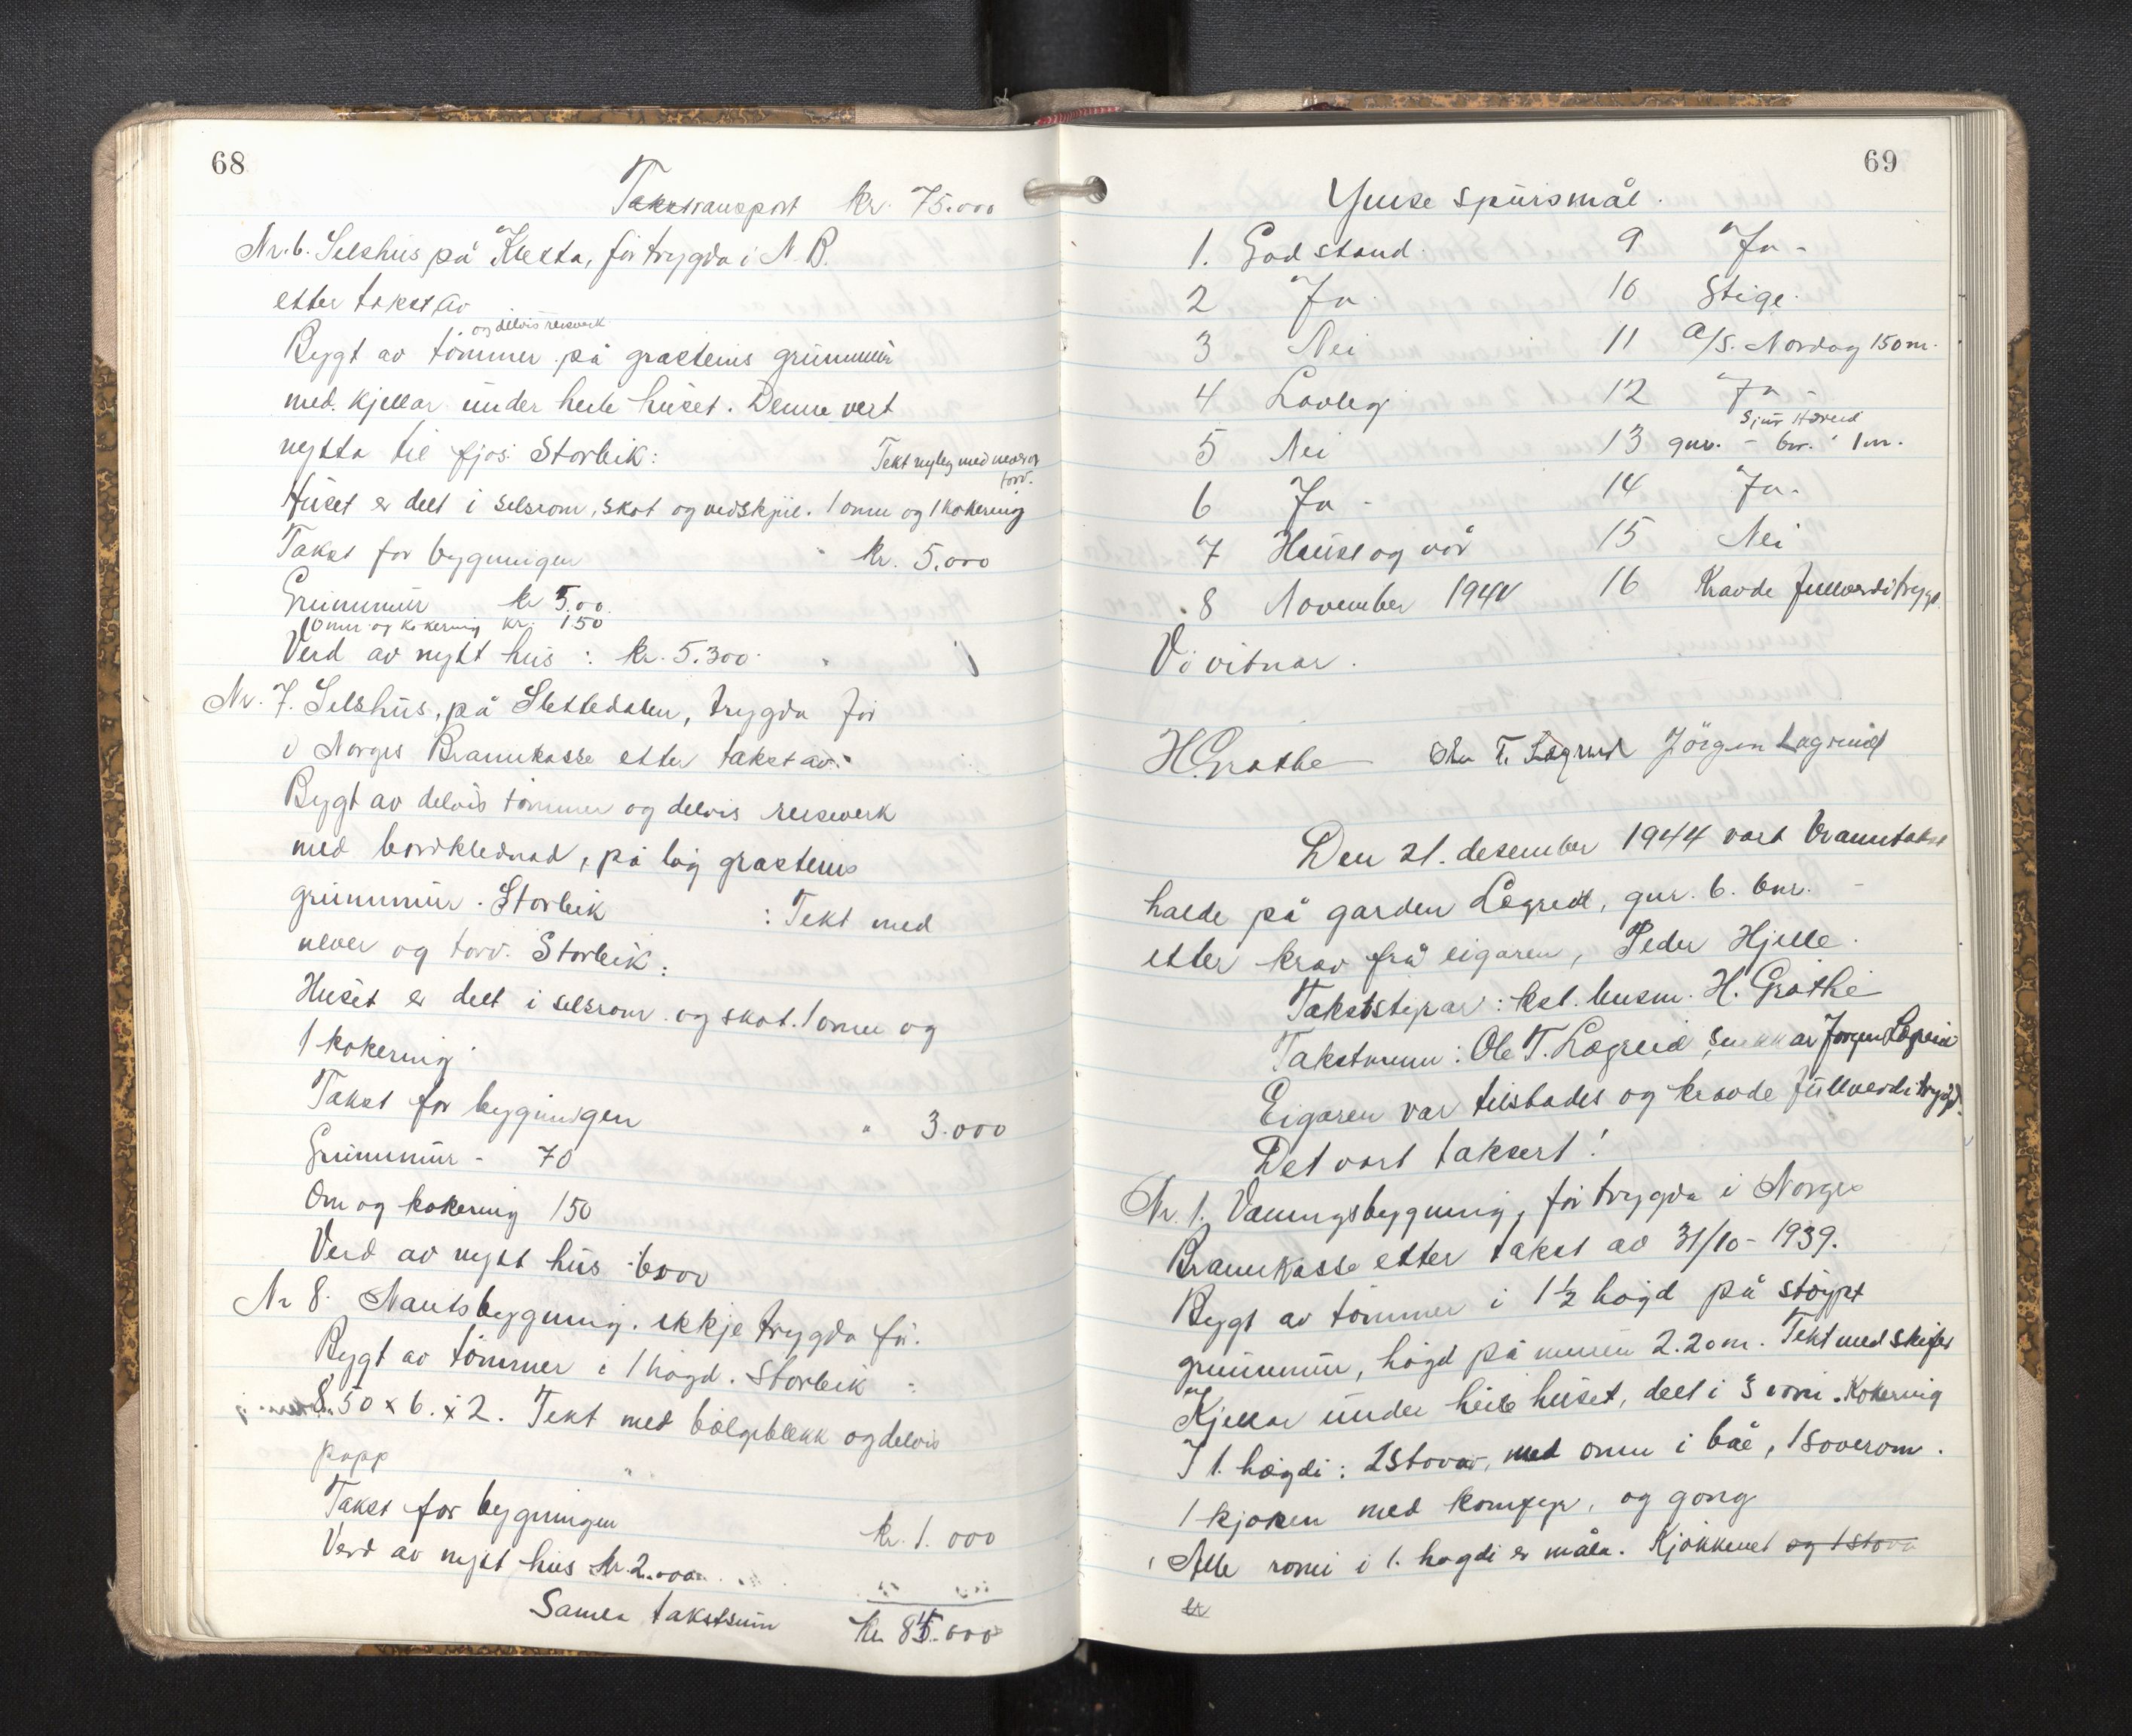 68
Taksttransport kr. 75.000
Nr. 6. Selshus på Kletta, før trygda i N. B.
etter takst av
og delvis reisverk
Bygt av tømmer på grasteins grunnmur
med kjellar under heile huset. Denne vert
nytta til fjos. Storleik:
Tekt nyleg med never og
torv.
Huset er delt i selsrom, skot og vedskjul. 1 omn og 1 kokering
Takst for bygningen kr. 5.000
Grunnmur kr 500.
1 omn og kokering kr. 150
Verd av nytt hus : kr. 5.300
Nr. 7. Selshus, på Slettedalen, trygda før
i Norges Brannkasse etter takst av:
Bygt av delvis tømmer og delvis reisverk
med bordklednad, på låg grasteins
grunnmur. Storleik : Tekt med
never og torv. Storleik:
Huset er delt i selsrom og skot. 1 omn og
1 kokering
Takst for bygningen " 3.000
Grunnmur - 70
Omn og kokering 150
Verd av nytt hus 6000
Nr 8. Naustbygning. ikkje trygda før.
Bygt av tømmer i 1 høgd. Storleik :
8.50 x 6. x 2. Tekt med bølgeblekk og delvis
papp
Takst for bygningen kr. 1.000
Verd av nytt hus kr. 2.000
Samla takstsum kr. 84.000
69
Ymse spursmål.
1. God stand. 9 Ja -
2 Ja. 10 Stige.
3 Nei 11 A/S. Nordag 150 m.
4 Lovleg 12 Ja -
Sjur Hæreid
5 Nei 13 gnr. - bnr. 1 m.
6 Ja - 14 Ja -
7 Haust og vår 15 Nei
8 November 1944 16 Kravde fullverditrygd.
Vi vitnar.
H. Grothe Ole T. Lægreid Jörgen Lægreid
Den 21. desember 1944 vart branntakst
halde på garden Lægreid, gnr. 6. bnr. -
etter krav frå eigaren, Peder Hjelle.
Takststyrar: kst. lensm. H. Grothe
Takstmenn: Ole T. Lægreid, snikkar Jørgen Lægreid
Eigaren var tilstades og kravde fullverditrygd.
Det vart taksert!
Nr. 1. Vaningsbygning, før trygda i Norges
Brannkasse etter takst av 31/10 - 1939.
Bygt av tømmer i 1½ høgd på støypt
grunnmur, høgd på muren 2.20 m. Tekt med skifer
Kjellar under heile huset, delt i 3 romi. Kokering
I 1. høgdi: 2 stovor, med omn i båe, 1 soverom.
1 kjøken med komfyr, og gong
Alle romi i 1. høgdi er måla. Kjøkkenet og 1 stova
er